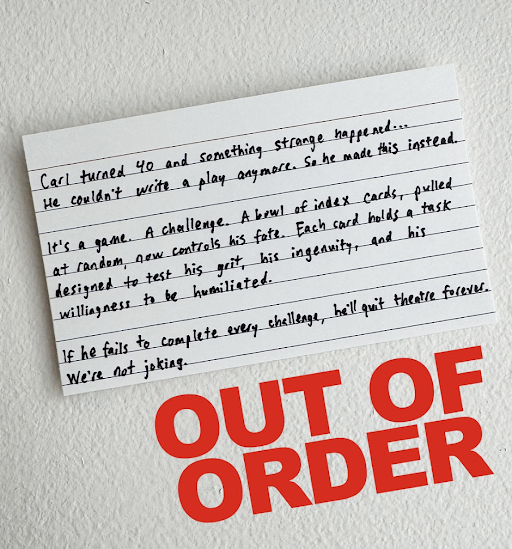 Carl turned 40 and something strange happened...
He couldn't write a play anymore. So he made this instead.
It's a game. A challenge. A bowl of index cards, pulled
at random, now controls his fate. Each card holds a task
designed to test his grit, his ingenuity, and his
willingness to be humiliated.
If he fails to complete every challenge, he'll quit theatre forever.
We're not joking.
OUT OF
ORDER